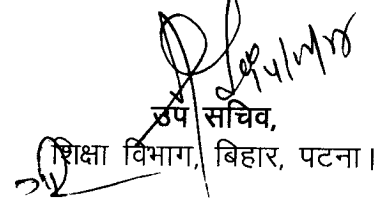 उप सचिव,
शिक्षा विभाग, बिहार, पटना।